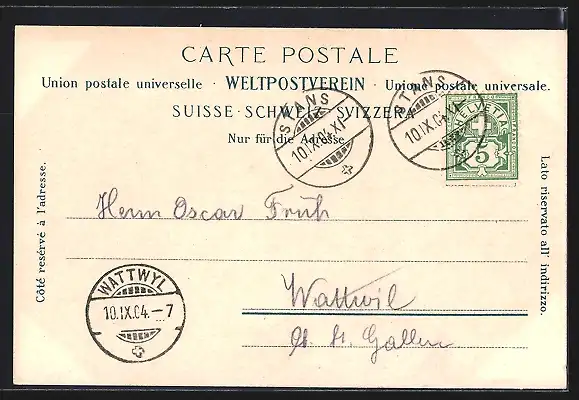 CARTE POSTALE
Union postale universelle · WELTPOSTVEREIN · Unione postale universale.
SUISSE · SCHWEIZ · SVIZZERA
Nur für die Adresse
STANS
10.IX.04.XI
STANS
10.IX.04.XI
HELVETIA
5
Côté reservé à l'adresse.
Lato riservato all' indirizzo.
Herrn Oscar Früh
WATTWYL
10.IX.04.-7
Wattwil
Ct. St. Gallen